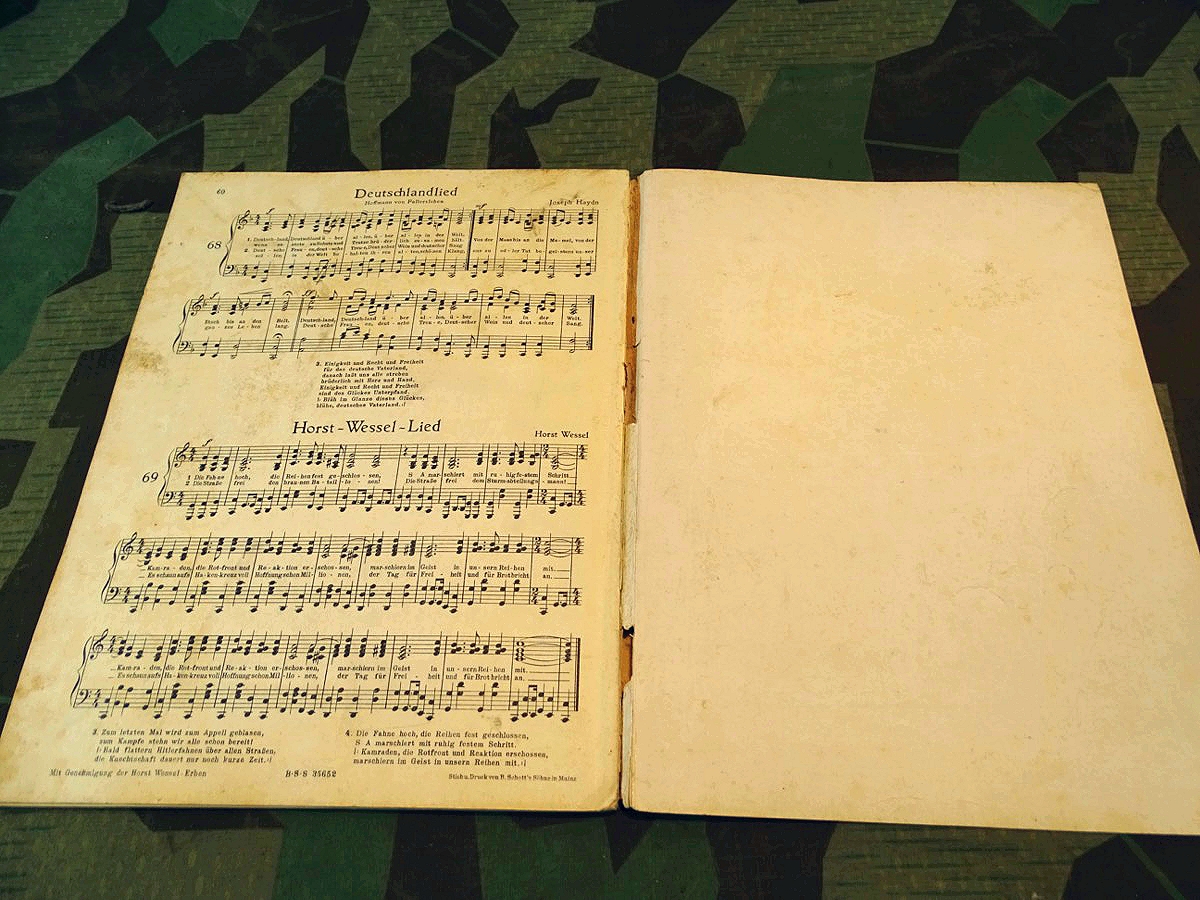 60
Deutschlandlied
Hoffmann von Fallersleben
Joseph Haydn
68
1. Deutsch-land, Deutschland ü - ber al - les, ü - ber al - les in der Welt. Von der Maas bis an die Me - mel, von der
wenn es stets zu Schutz und Trutze brü - der - lich zu - sam - men hält.
2. Deut - sche Frau - en, deut - sche Treu - e, Deutscher Wein und deutscher Sang
sol - len in der Welt be - hal - ten ih - ren al - ten, schö - nen Klang, uns zu ed - ler Tat be - gei - stern un - ser
Etsch bis an den Belt, Deutsch-land, Deutsch-land ü - ber al - les, ü - ber al - les in der Welt.
gan - zes Le - ben lang. Deut - sche Frau - en, deut - sche Treu - e, Deut - scher Wein und deut - scher Sang.
3. Einigkeit und Recht und Freiheit
für das deutsche Vaterland,
danach laßt uns alle streben
brüderlich mit Herz und Hand,
Einigkeit und Recht und Freiheit
sind des Glückes Unterpfand.
|: Blüh im Glanze dieses Glückes,
blühe, deutsches Vaterland. :|
Horst-Wessel-Lied
Horst Wessel
69
1 Die Fahne hoch, die Rei-hen fest ge-schlos-sen, S A mar-schiert mit ru-hig fe-stem Schritt.
2 Die Straße frei den brau-nen Ba-tail-lo-nen! Die Straße frei dem Sturm-abteilungs-mann!
Kam-ra-den, die Rot-front und Re-ak-tion er-schos-sen, mar-schiern im Geist in un-sern Rei-hen mit.
Es schaun aufs Ha-ken-kreuz voll Hoffnung schon Mil-lio-nen, der Tag für Frei-heit und für Brot bricht an.
Kam-ra-den, die Rot-front und Re-ak-tion er-schos-sen, mar-schiern im Geist in un-sern Rei-hen mit.
Es schaun aufs Ha-ken-kreuz voll Hoffnung schon Mil-lio-nen, der Tag für Frei-heit und für Brot bricht an.
3. Zum letzten Mal wird zum Appell geblasen,
zum Kampfe stehn wir alle schon bereit!
|: Bald flattern Hitlerfahnen über allen Straßen,
die Knechtschaft dauert nur noch kurze Zeit. :|
4. Die Fahne hoch, die Reihen fest geschlossen,
S A marschiert mit ruhig festem Schritt.
|: Kamraden, die Rotfront und Reaktion erschossen,
marschiern im Geist in unsern Reihen mit. :|
Mit Genehmigung der Horst Wessel Erben
B·S·S 35652
Stich u. Druck von B. Schott's Söhne in Mainz